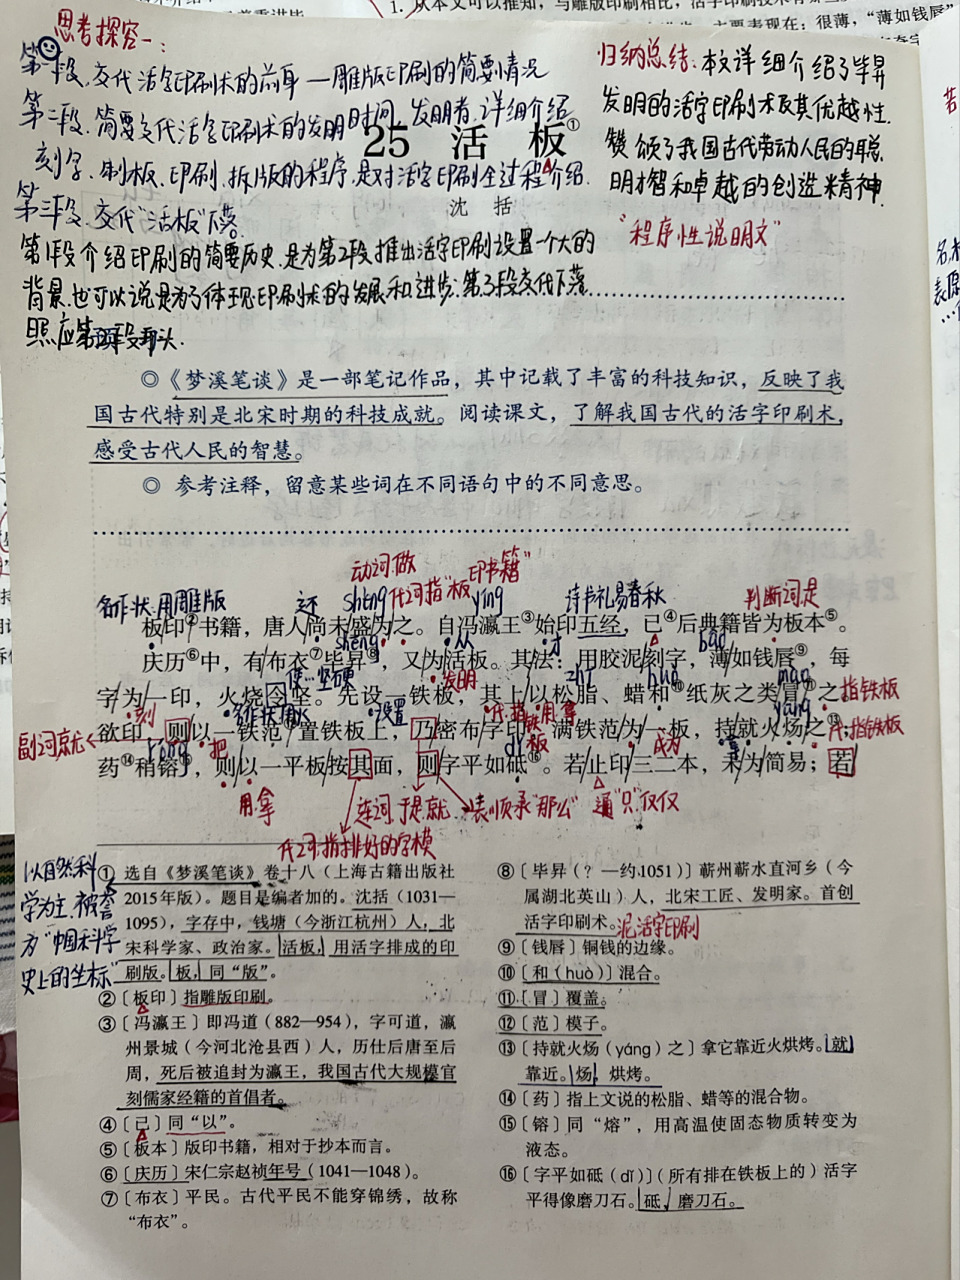 思考探究一:
第一段,交代活字印刷术的前身——雕版印刷的简要情况
第二段,简要交代活字印刷术的发明时间,发明者,详细介绍
刻字、制板、印刷、拆版的程序,是对活字印刷全过程介绍.
第三段,交代“活板”下落。
第1段介绍印刷的简要历史,是为第2段推出活字印刷设置一个大的
背景,也可以说是为了体现印刷术的发展和进步;第3段交代下落
照应第
段
头.
归纳总结:本文详细介绍了毕昇
发明的活字印刷术及其优越性.
赞颂了我国古代劳动人民的聪
明才智和卓越的创造精神.
“程序性说明文”
25 活 板①
沈 括
◎《梦溪笔谈》是一部笔记作品,其中记载了丰富的科技知识,反映了我
国古代特别是北宋时期的科技成就。阅读课文,了解我国古代的活字印刷术,
感受古代人民的智慧。
◎ 参考注释,留意某些词在不同语句中的不同意思。
动词.做
代词指“板印书籍”
名作状.用雕版
还
shèng
yíng
诗书礼易春秋
判断词是
板印②书籍,唐人尚未盛为之。自冯瀛王③始印五经,已④后典籍皆为板本⑤。
shēng
从
才
báo
庆历⑥中,有布衣⑦毕昇⑧,又为活板。其法:用胶泥刻字,薄如钱唇⑨,每
使…坚硬
发明
zhī
huò
mào
字为一印,火烧令坚。先设一铁板,其上以松脂、蜡和⑩纸灰之类冒⑪之。
指铁板
刻
名作状.用火
设置
代指铁板
用.拿
yáng
代.指铁板
欲印,则以一铁范⑫置铁板上,乃密布字印,满铁范为一板,持就火炀之⑬;
副词.就
róng
把
dǐ
成为
拿
药⑭稍镕⑮,则以一平板按其面,则字平如砥⑯。若止印三二本,未为简易;若
用.拿
连词.于是.就
表顺承“那么”
通“只”.仅仅
代词.指排好的字模
以自然科
学为主.被誉
为“中国科学
史上的坐标”
① 选自《梦溪笔谈》卷十八(上海古籍出版社
2015年版)。题目是编者加的。沈括(1031—
1095),字存中,钱塘(今浙江杭州)人,北
宋科学家、政治家。活板,用活字排成的印
刷版。板,同“版”。
②〔板印〕指雕版印刷。
③〔冯瀛王〕即冯道(882—954),字可道,瀛
州景城(今河北沧县西)人,历仕后唐至后
周,死后被追封为瀛王,我国古代大规模官
刻儒家经籍的首倡者。
④〔已〕同“以”。
⑤〔板本〕版印书籍,相对于抄本而言。
⑥〔庆历〕宋仁宗赵祯年号(1041—1048)。
⑦〔布衣〕平民。古代平民不能穿锦绣,故称
“布衣”。
⑧〔毕昇(?—约1051)〕蕲州蕲水直河乡(今
属湖北英山)人,北宋工匠、发明家。首创
活字印刷术。
泥活字印刷
⑨〔钱唇〕铜钱的边缘。
⑩〔和(huò)〕混合。
⑪〔冒〕覆盖。
⑫〔范〕模子。
⑬〔持就火炀(yáng)之〕拿它靠近火烘烤。就,
靠近。炀,烘烤。
⑭〔药〕指上文说的松脂、蜡等的混合物。
⑮〔镕〕同“熔”,用高温使固态物质转变为
液态。
⑯〔字平如砥(dǐ)〕(所有排在铁板上的)活字
平得像磨刀石。砥,磨刀石。